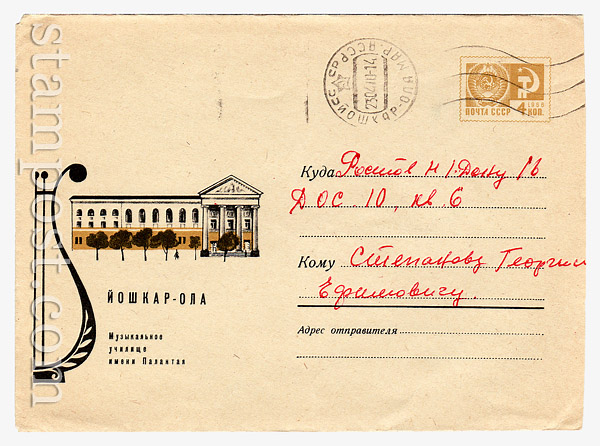 stampost.com
СССР ЙОШКАР-ОЛА МАР. АССР
230470-14
1966
ПОЧТА СССР 4 КОП.
Куда Ростов н/Дону
ДОС 10, кв 6
Кому Степанову Георгию
Ефимовичу.
Адрес отправителя
ЙОШКАР-ОЛА
Музыкальное
училище
имени Палантая